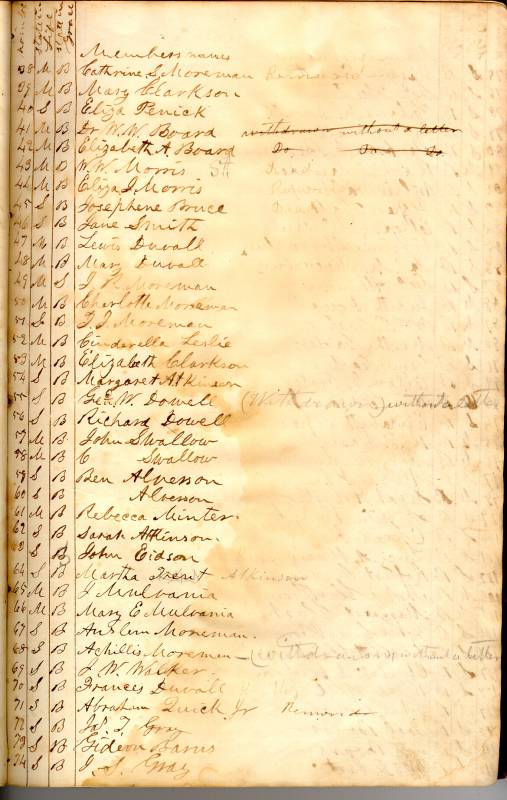 State in Life
State in Grace
Members names
38 M B Cathrine S. Moreman Removed
39 M B Mary Clarkson
40 S B Eliza Penick
41 M B Dr W. W. Board withdrawn without a letter
42 M B Elizabeth A. Board Do. Do. Do
43 M B W. W. Morris Dead
44 M B Eliza J. Morris Removed
45 S B Josephene Bruce Dead
46 S B Jane Smith
47 M B Lewis Duvall
48 M B Mary Duvall
49 M S J. R. Moreman
50 M B Charlotte Moreman
51 S B T. J. Moreman
52 M B Cinderella Leslie
53 M B Elizabeth Clarkson
54 S B Margaret Atkinson
55 S B Geo. W. Dowell (Withdrawn) without a letter
56 S B Richard Dowell
57 M B John Swallow
58 M B C Swallow
59 S B Ben Alvesson
60 S B Alvesson
61 M B Rebecca Minter.
62 S B Sarah Atkinson.
63 S B John Eidson
64 S B Martha Trent Atkinson
65 M B J Mulvania
66 M B Mary E Mulvania
67 S B Auslem Moreman.
68 S B Achillis Moreman - (withdrawn) without a letter
69 S B J. W. Walker.
70 S B Frances Duvall
71 S B Abraham Quick Jr Removed
72 S B Jos. T. Gray
73 S B Gideon Barns
74 S B J. S. Gray